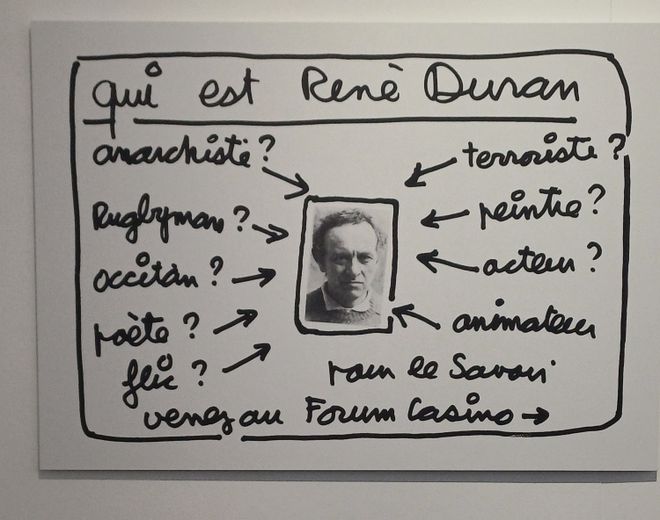 qui est Renè Duran
anarchiste ?
Rugbyman ?
occitan ?
poète ?
flic ?
terroriste ?
peintre ?
acteur ?
animateur
pour le Savoir
venez au Forum Casino →